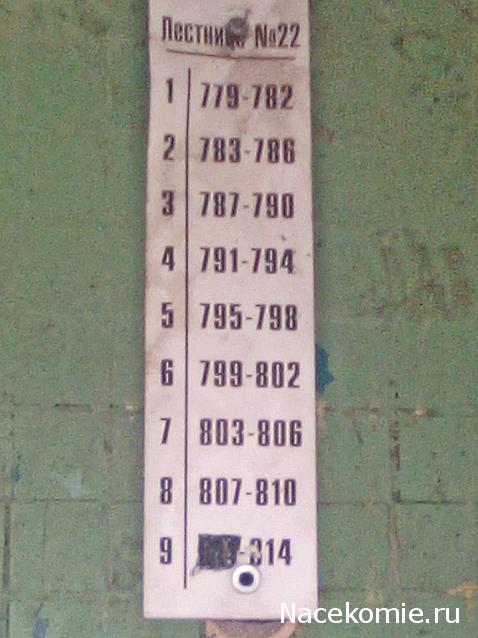 Лестница №22
1 779-782
2 783-786
3 787-790
4 791-794
5 795-798
6 799-802
7 803-806
8 807-810
9 -814
Nacekomie.ru